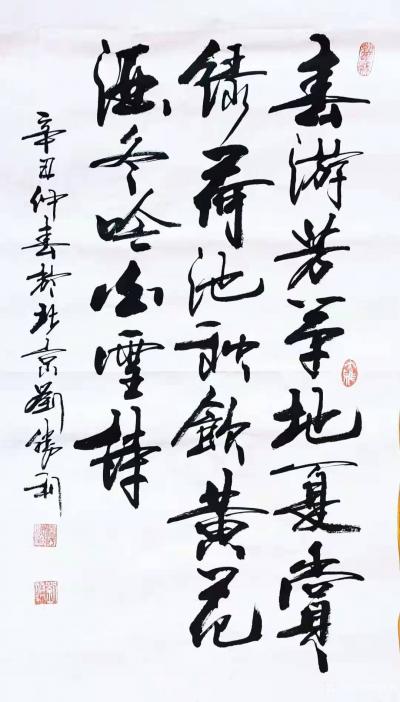 春游芳草地夏賞
綠荷池秋飲黄花
酒冬吟白雪詩
辛丑仲春於北京劉勝利